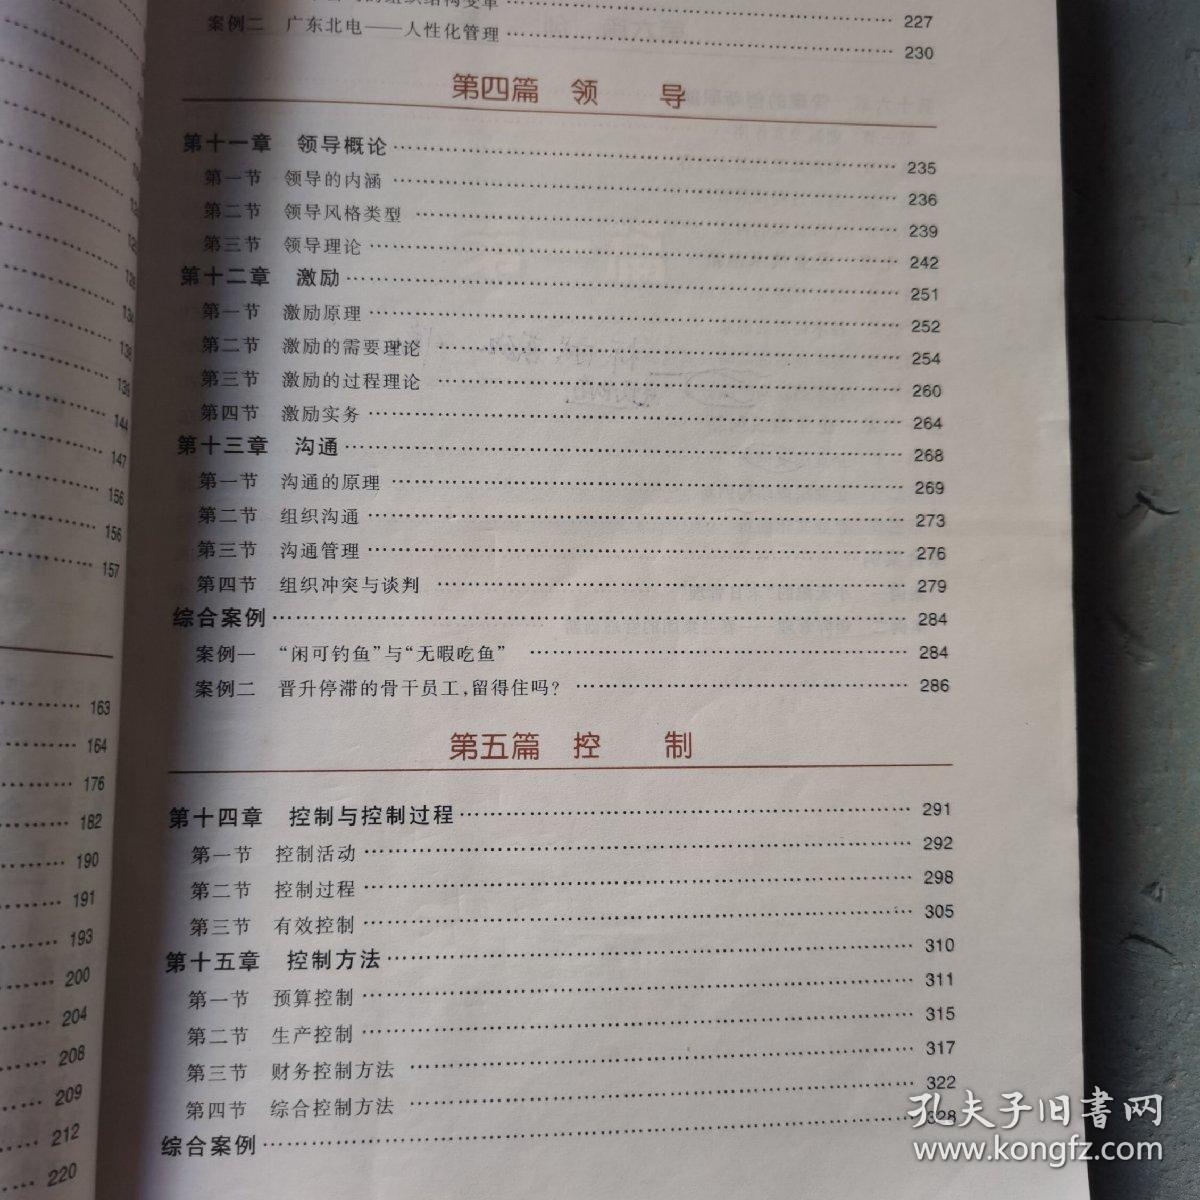 的组织结构变革 …… 227
案例二 广东北电——人性化管理 …… 230
第四篇 领 导
第十一章 领导概论 …… 235
第一节 领导的内涵 …… 236
第二节 领导风格类型 …… 239
第三节 领导理论 …… 242
第十二章 激励 …… 251
第一节 激励原理 …… 252
第二节 激励的需要理论 …… 254
第三节 激励的过程理论 …… 260
第四节 激励实务 …… 264
第十三章 沟通 …… 268
第一节 沟通的原理 …… 269
第二节 组织沟通 …… 273
第三节 沟通管理 …… 276
第四节 组织冲突与谈判 …… 279
综合案例 …… 284
案例一 “闲可钓鱼”与“无暇吃鱼” …… 284
案例二 晋升停滞的骨干员工,留得住吗? …… 286
第五篇 控 制
第十四章 控制与控制过程 …… 291
第一节 控制活动 …… 292
第二节 控制过程 …… 298
第三节 有效控制 …… 305
第十五章 控制方法 …… 310
第一节 预算控制 …… 311
第二节 生产控制 …… 315
第三节 财务控制方法 …… 317
第四节 综合控制方法 …… 322
综合案例 …… 328
134
138
139
144
147
156
156
157
163
164
176
182
190
191
193
200
204
208
209
212
220
孔夫子旧书网
www.kongfz.com